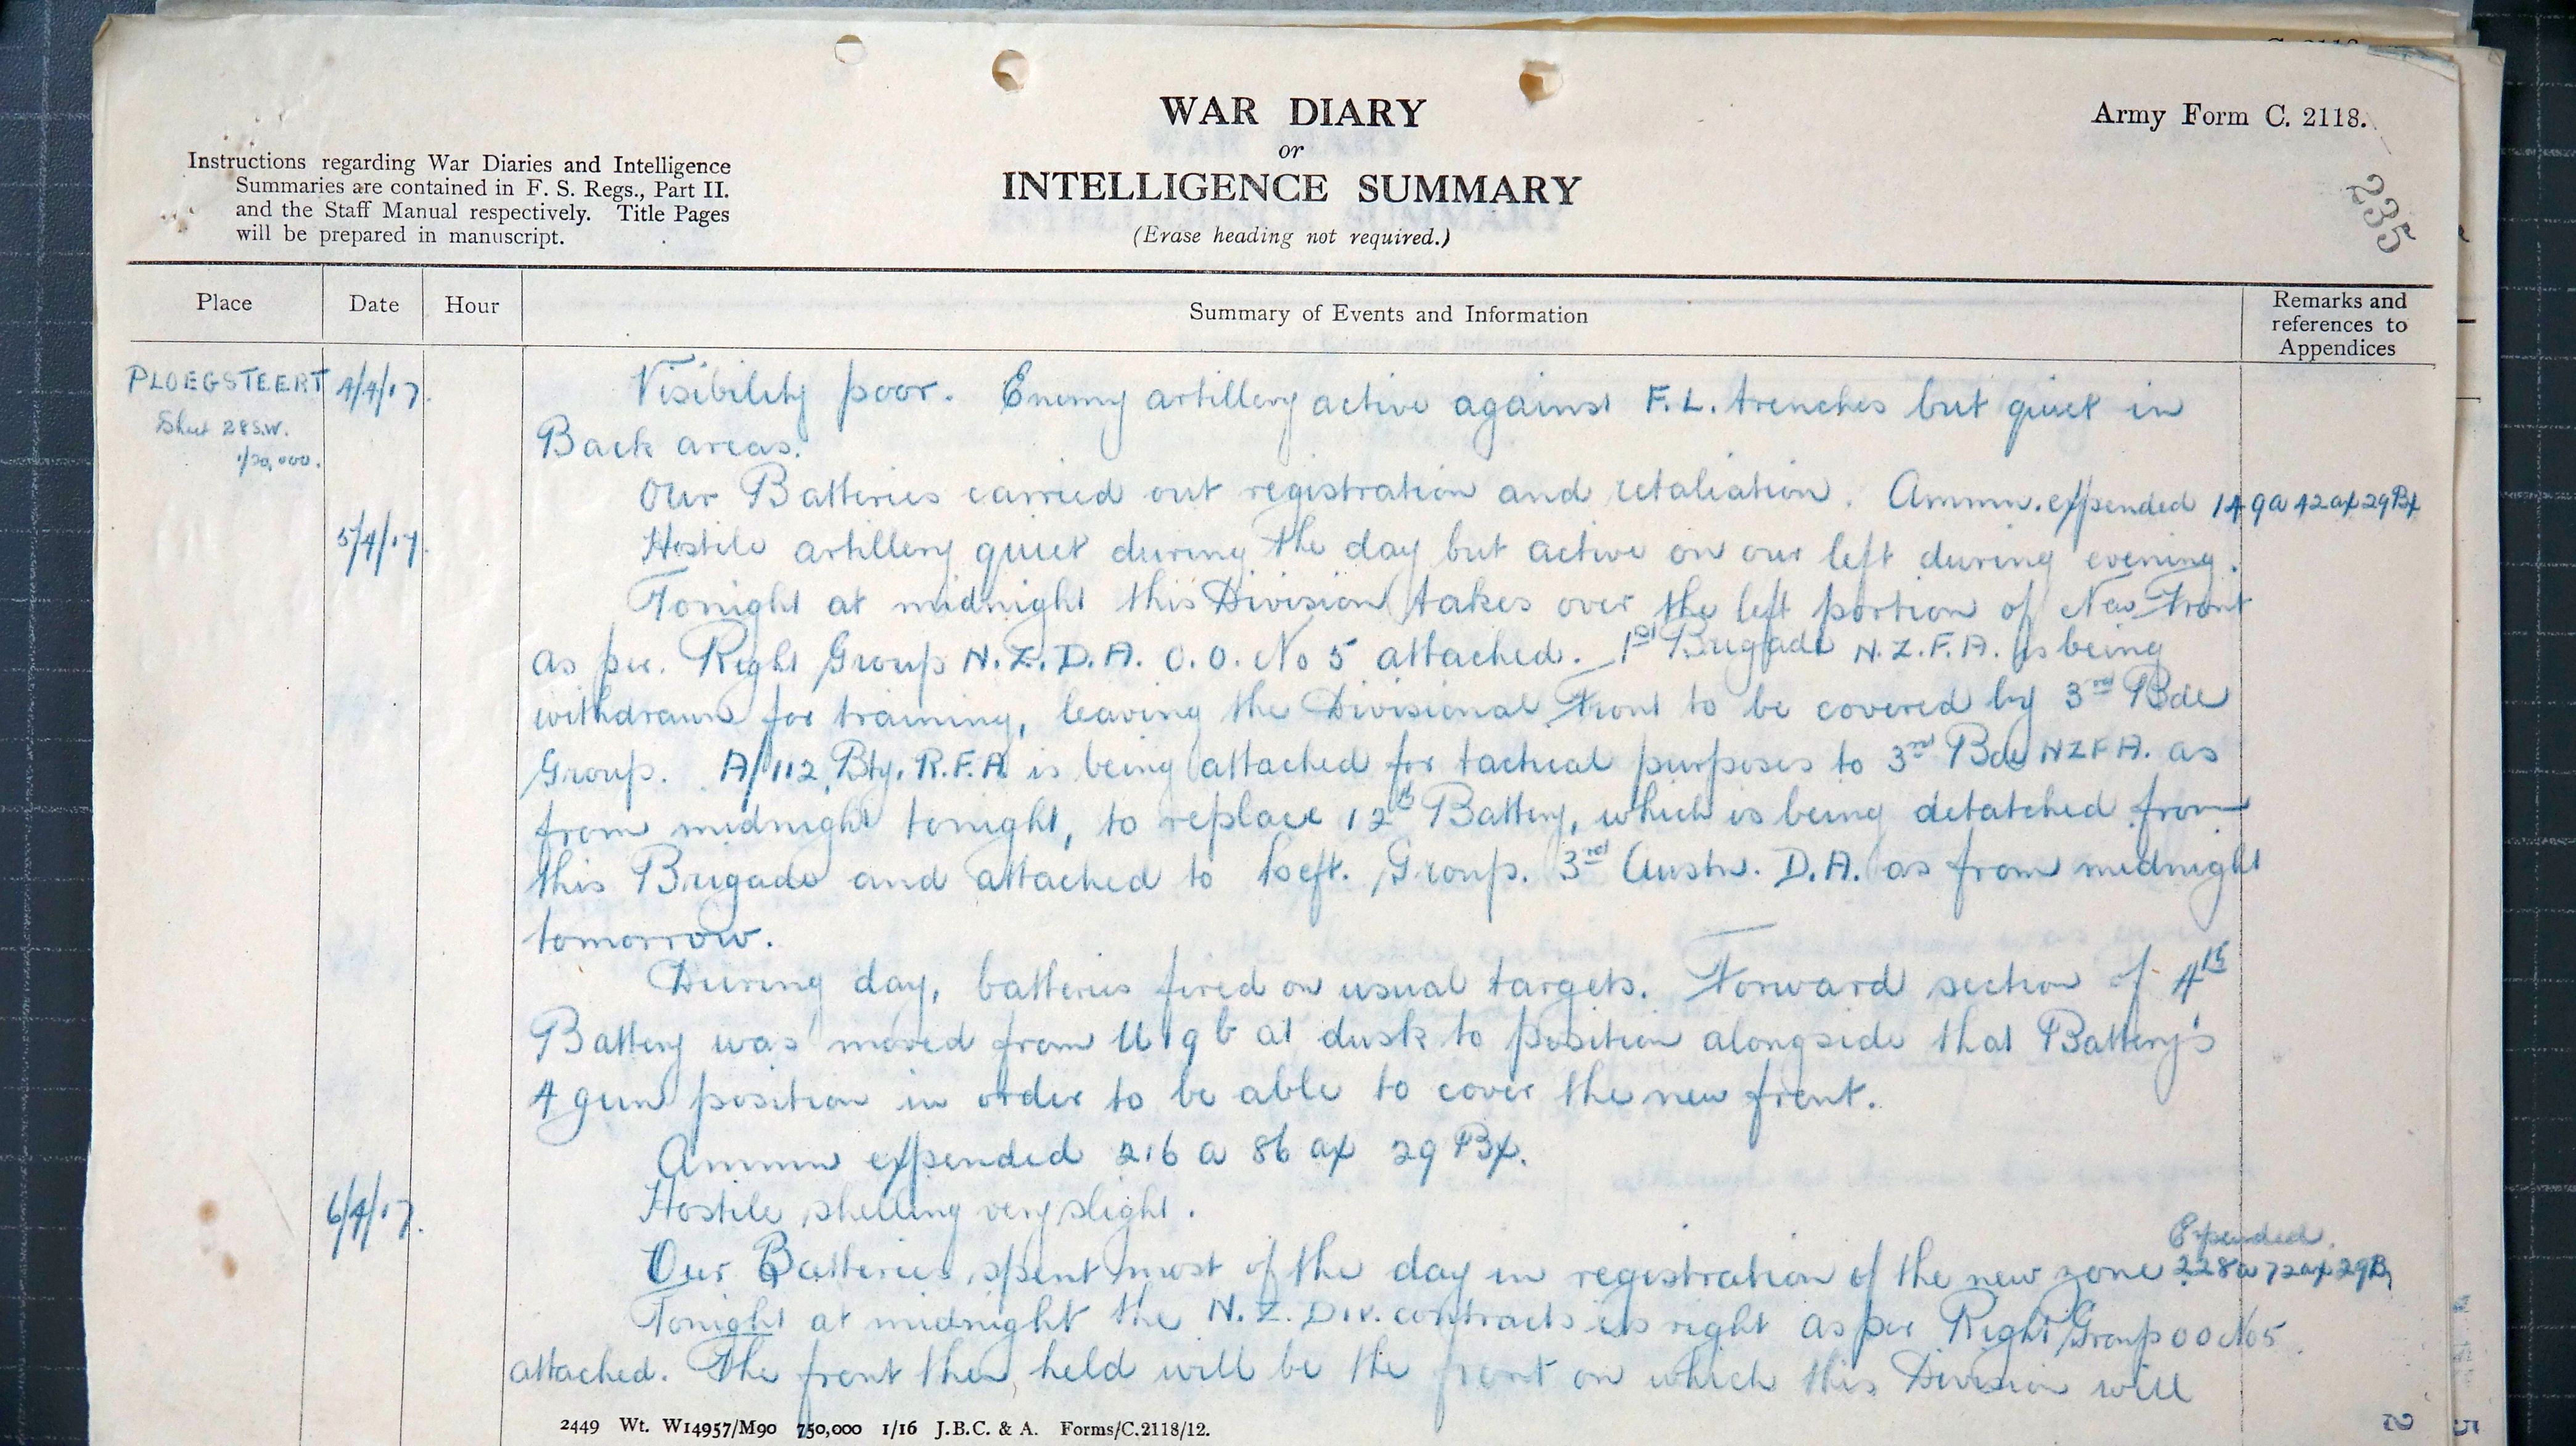 C. 2118
WAR DIARY
or
INTELLIGENCE SUMMARY
(Erase heading not required.)
Army Form C. 2118.
Instructions regarding War Diaries and Intelligence
Summaries are contained in F. S. Regs., Part II.
and the Staff Manual respectively. Title Pages
will be prepared in manuscript.
235
Place Date Hour Summary of Events and Information Remarks and references to Appendices
PLOEGSTEERT 4/4/17. Visibility poor. Enemy artillery active against F.L. trenches but quiet in
Sheet 28 S.W. Back areas.
1/20,000.
Our Batteries carried out registration and retaliation. Ammn. expended 149a 42ax 29Bx
5/4/17. Hostile artillery quiet during the day but active on our left during evening.
Tonight at midnight this Division takes over the left portion of New Front
as per. Right Group N.Z.D.A. O.O. No 5 attached. 1st Brigade N.Z.F.A. is being
withdrawn for training, leaving the Divisional Front to be covered by 3rd Bde
Group. A/112 Bty. R.F.A is being attached for tactical purposes to 3rd Bde NZFA. as
from midnight tonight, to replace 12th Battery, which is being detatched from
this Brigade and attached to Left. Group. 3rd Austn. D.A. as from midnight
tomorrow.
During day, batteries fired on usual targets. Forward section of 4th
Battery was moved from U19b at dusk to position alongside that Battery's
4 gun position in order to be able to cover the new front.
Ammn expended 216 a 86 ax 29 Bx.
6/4/17. Hostile shelling very slight.
Our Batteries spent most of the day in registration of the new zone Expended. 228a 72ax 29B
Tonight at midnight the N.Z. Div. contracts its right as per Right Group OO No5
attached. The front then held will be the front on which this Division will
2449 Wt. W14957/M90 750,000 1/16 J.B.C. & A. Forms/C.2118/12.